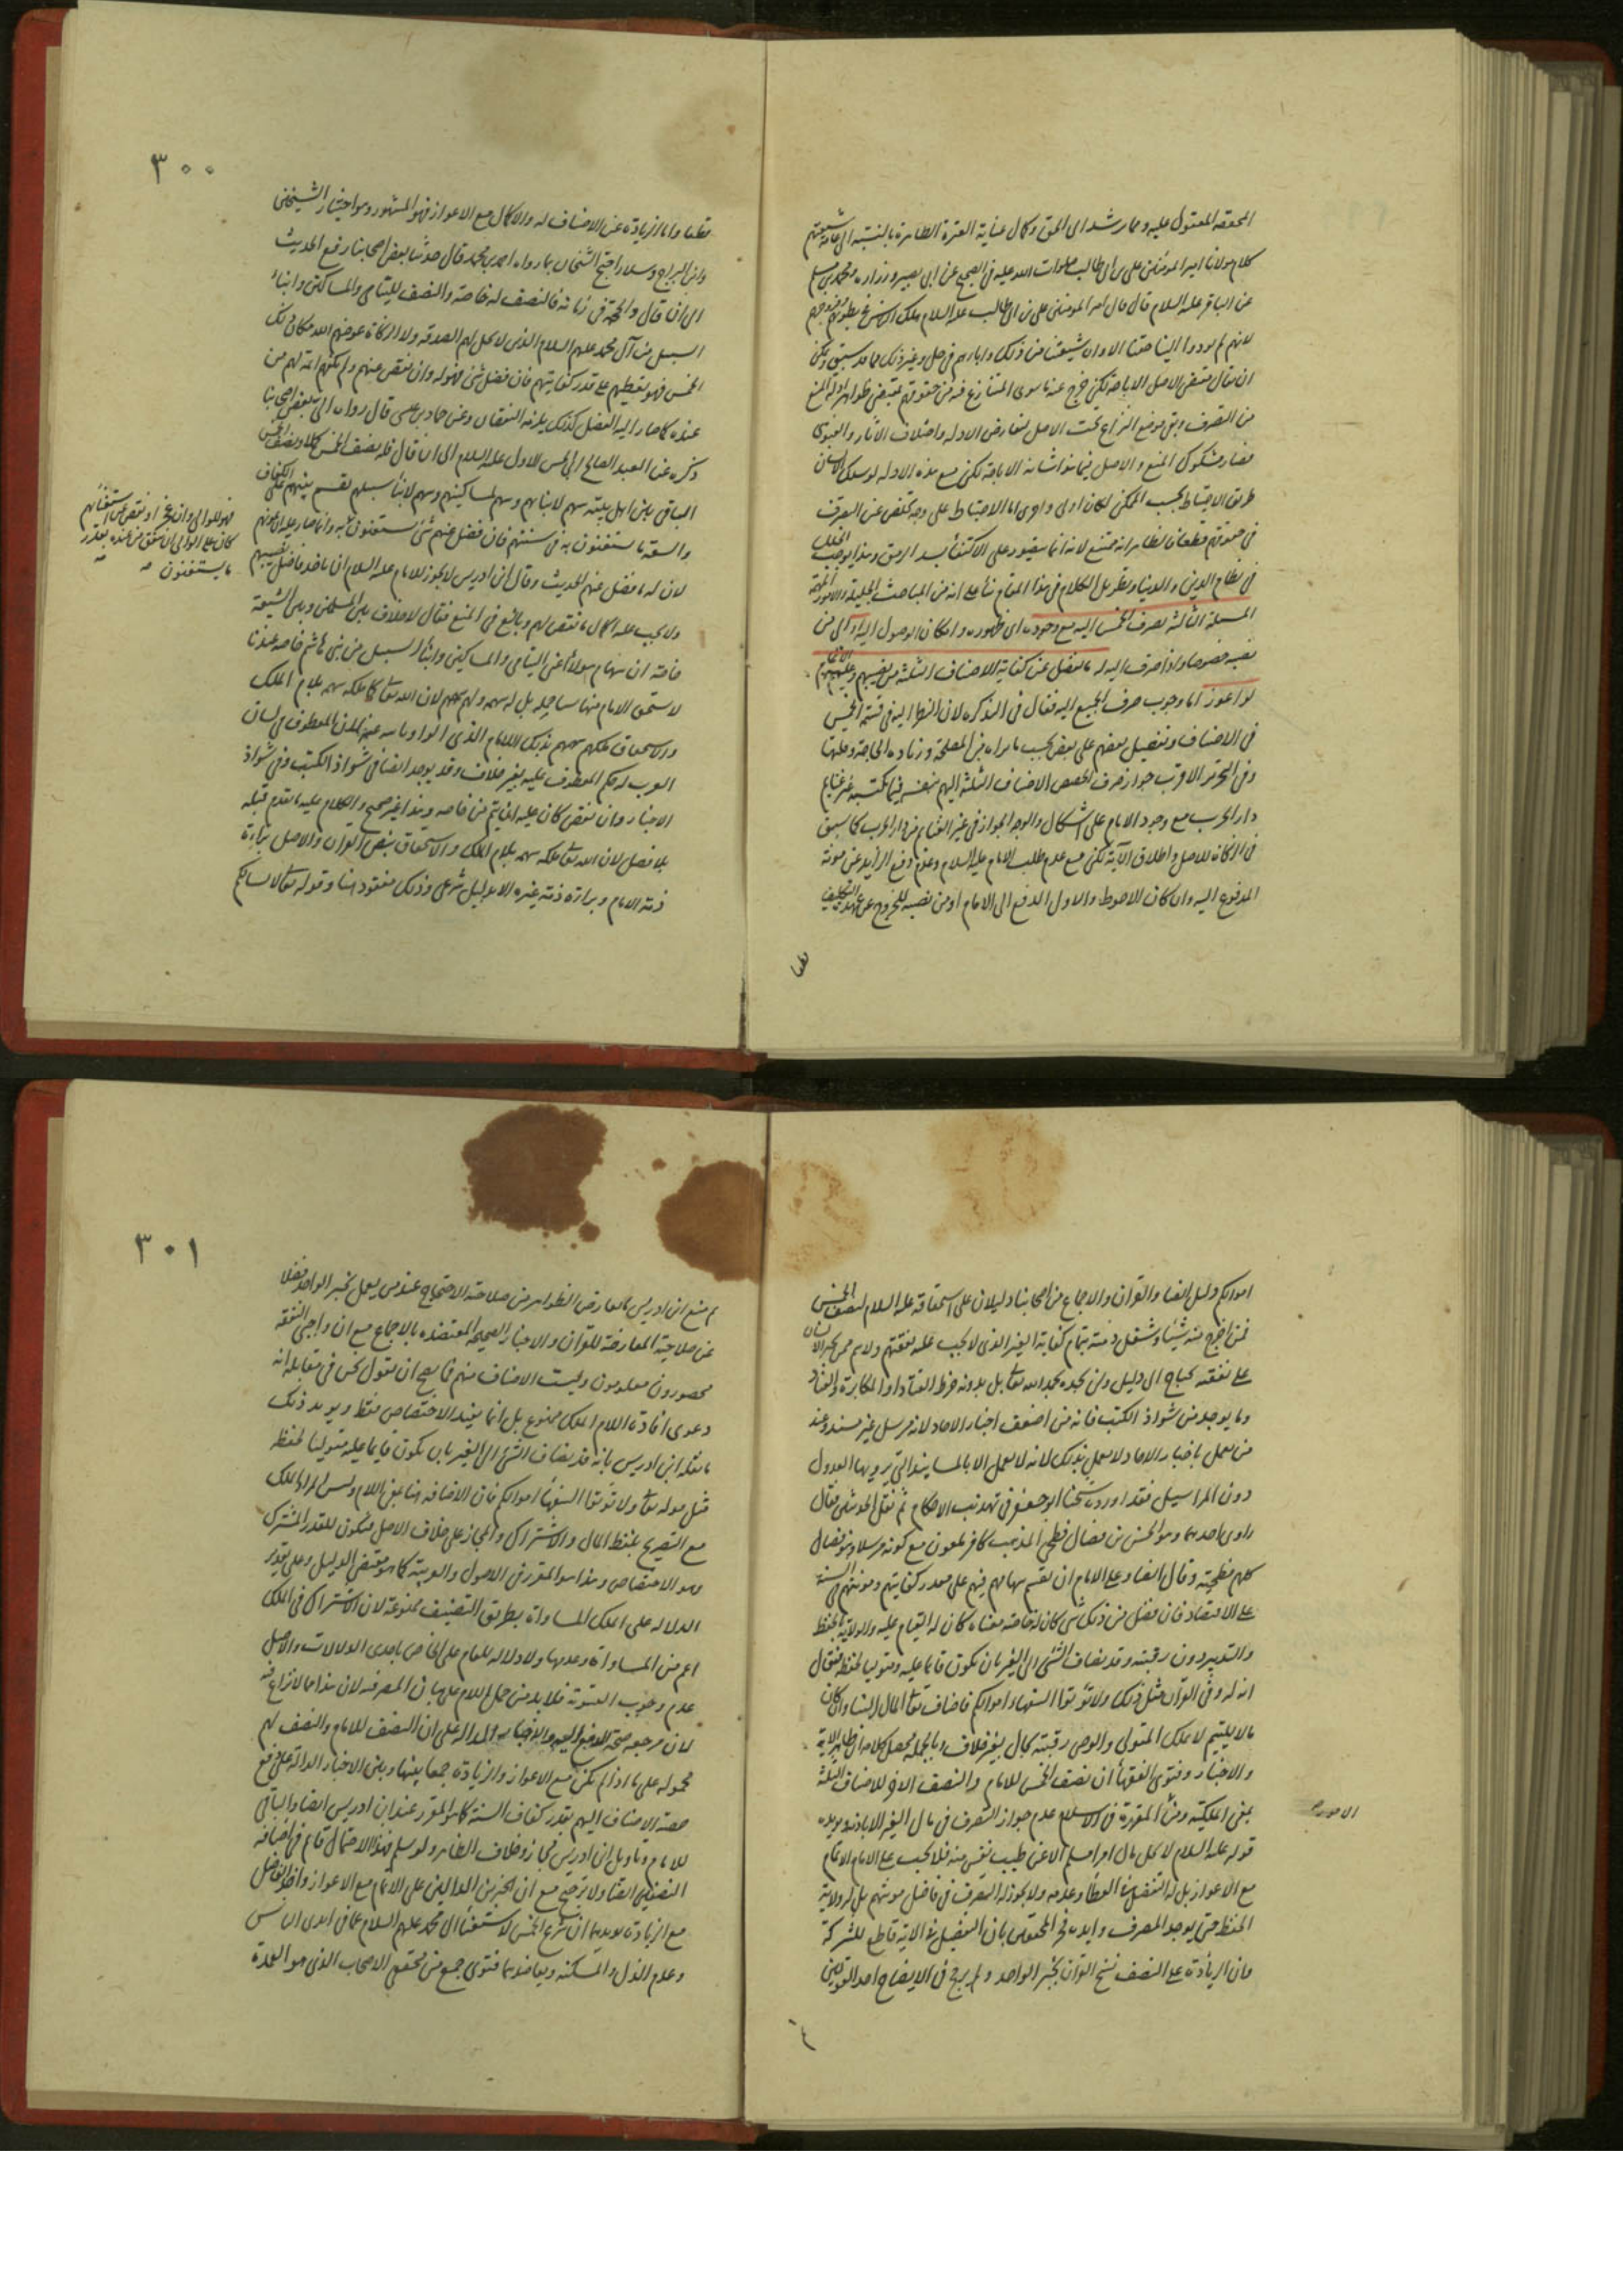 المحققه المعتول عليه ومما يرشد الى الحق وكمال عناية العترة الطاهرة بالنسبة الى عامة شيعتهم
كلام مولانا امير المؤمنين على بن ابى طالب صلوات الله عليه فى الصحيح عن ابى بصير وزراره ومحمد بن مسلم
عن الباقر عليه السلام قال قال امير المؤمنين على بن ابى طالب عليه السلام هلك الناس فى بطونهم وفروجهم
لانهم لم يودوا الينا حقنا الا وان شيعتنا من ذلك وابائهم فى حل وغير ذلك مما قد سبق ويمكن
ان يقال مقتضى الاصل الاباحة لكن خرج عنه ما سوى المتنازع فيه من حقوقهم بمقتضى ظواهر ادلة المنع
من التصرف وبقى موضع النزاع تحت الاصل لتعارض الادله واختلاف الاثار والفتوى
فصار مشكوك المنع والاصل فيما هو اشأنه الاباحة لكن مع هذه الادله لو سلك الانسان
طريق الاحتياط بحسب الممكن لكان اولى واحرى اما الاحتياط على وجه يختص عن التصرف
فى حقوقهم قطعا فالظاهر انه ممتنع لانه انما يتصور على الاكتفاء بسد الرمق وهذا يوجب الخلل
فى نظام الدين والدنيا وتطويل الكلام فى هذا المقام بناء على انه من المباحث الجليلة والامور المهمة
المسئلة الثالثة يصرف الخمس اليه مع وجوده اى ظهوره وامكان الوصول اليه او الى من
نصبه خصوصا واذا صرف اليه له ما يفضل عن كفاية الاصناف الثلثة من نصيبهم وعليه الاتمام لهم
لو اعوز اما وجوب صرف الجميع اليه فقال فى التذكره لان النظر اليه فى قسمة الخمس
فى الاصناف وتفضيل بعضهم على بعض بحسب ما يراه من المصلحة وزيادة الحاجة وقلتها
وفى التحرير الاقرب جواز صرف ما يخص الاصناف الثلثة اليهم بنفسه فيما يكتسبه غير غنايم
دار الحرب مع وجود الامام على اشكال والوجه الجواز فى غير الغنايم من دار الحرب كما سبق
فى الزكاة للاصل واطلاق الآية لكن مع عدم طلب الامام عليه السلام وعدم دفع الزايد عن مؤنة
المدفوع اليه وان كان الاحوط والاول الدفع الى الامام او من نصبه للخروج عن عهدة التكليف
قطعا
٣٠٠
قطعا واما الزيادة عن الاصناف له والاكمال مع الاعواز فهو المشهور وهو اختيار الشيخين
وابن البراج وسلار احتج الشيخان بما رواه احمد بن محمد قال حدثنا بعض اصحابنا رفع الحديث
الى ان قال والحجة فى زمانه فالنصف له خاصة والنصف لليتامى والمساكين وابناء
السبيل من آل محمد عليهم السلام الذين لا تحل لهم الصدقه ولا الزكاة عوضهم الله مكان ذلك
الخمس فهو يعطيهم على قدر كفايتهم فان فضل شئ فهو له وان نقص عنهم ولم يكفهم اتمه لهم من
عنده كما صار اليه الفضل كذلك يلزمه النقصان وعن حماد بن عيسى قال رواه الى بعض اصحابنا
ذكره عن العبد الصالح ابى الحسن الاول عليه السلام الى ان قال فله نصف الخمس كملا ونصف الخمس
الباقى بين اهل بيته سهم لايتامهم وسهم لمساكينهم وسهم لابناء سبيلهم يقسم بينهم على الكفاف
والسعة ما يستغنون به فى سنتهم فان فضل عنهم شئ يستغنون عنه وانما صار عليه ان يمونهم
لان له ما فضل عنهم الحديث وقال ابن ادريس لا يجوز للامام عليه السلام ان ياخذ ما فضل من نصيبهم
ولا يجب عليه اكمال ما نقص لهم وبالغ فى المنع فقال لا خلاف بين المسلمين وبين الشيعة
خاصة ان سهام هؤلاء اعنى اليتامى والمساكين وابناء السبيل من بنى هاشم خاصه عندنا
لا يستحق الامام منها سهما بل له سهمه ولهم سهمهم لان الله تعالى كما ملكه سهمه بلام الملك
والاستحقاق ملكهم سهمهم بذلك اللام الذى الواو نايب عنه لان المعطوف فى لسان
العرب له حكم المعطوف عليه بغير خلاف وقد يوجد ايضا فى شواذ الكتب وفى شواذ
الاخبار وان نقص كان عليه ان يتم من خاصه وهذا غير صحيح والكلام عليه ما تقدم قبله
بلا فصل لان الله تعالى ملكه سهمه بلام الملك والاستحقاق بنص القرآن والاصل براءة
ذمة الامام وبراءة ذمة غيره الا بدليل شرعى وذلك مفقود هنا وقوله تعالى لا يسالكم
فهو للوالى وان عجز او نقص عن استغنائهم
كان على الوالى ان ينفق من عنده بقدر
ما يستغنون به صح
اموالكم دليل ايضا والقرآن والاجماع من اصحابنا دليلان على استحقاقه عليه السلام لنصف الخمس
فمن اخرج منه شيئا وشغل ذمته بتمام كفاية الغير الذى لا يجب عليه نفقتهم ولا هم ممن يجبر الانسان
على نفقته يحتاج الى دليل ولن يجده بحمد الله تعالى بل بدونه خرط القتاد او المكابرة والعناد
وما يوجد من شواذ الكتب فانه من اضعف اخبار الاحاد لانه مرسل غير مسند وعند
من يعمل باخبار الاحاد لا يعمل بذلك لانه لا يعمل الا بالمسانيد التى يرويها العدول
دون المراسيل فقد اورده شيخنا ابو جعفر فى تهذيب الاحكام ثم نقل الحديثين فقال
راوى احدهما وهو الحسن بن فضال فطحى المذهب كافر ملعون مع كونه مرسلا وبنو فضال
كلهم فطحية وقال ايضا وعلى الامام ان يقسم سهامهم فيهم على قدر كفايتهم ومؤنتهم فى السنة
على الاقتصاد فان فضل من ذلك شئ كان له خاصة معناه كان له القيام عليه والولاية بالحفظ
والتدبير دون رقبته وقد يضاف الشئ الى الغير بان يكون قائما عليه ومتوليا لحفظه فيقال
انه له وفى القرآن مثل ذلك ولا تؤتوا السفهاء اموالكم فاضاف تعالى المال الينا وان كان
مالا لليتيم لا يملك المتولى والوصى رقبته بحال بغير خلاف وبالجملة محصل كلامه ان ظاهر الآية
والاخبار وفتوى الفقهاء ان نصف الخمس للامام والنصف الاخر للاصناف الثلثة
بمعنى الملكية ومن المقررة فى الاسلام عدم جواز التصرف فى مال الغير الا باذنه ويويده
قوله عليه السلام لا يحل مال امرء مسلم الا عن طيب نفس منه فلا يجب على الامام الاتمام
مع الاعواز بل له التفضل فى العطاء وعدمه ولا يجوز له التصرف فى فاضل مونتهم بل له ولاية
الحفظ حتى يوجد المصرف وايده فخر المحققين بان التفصيل فى الآية قاطع للشركة
وبان الزيادة على النصف نسخ القرآن بخبر الواحد ولم يرجح فى الايضاح احد القولين
٣٠١
ثم منع ابن ادريس ما يعارض الظواهر من صلاحية الاحتجاج عند من يعمل بخبر الواحد فضلا
عن صلاحية المعارضة للقرآن والاخبار الصحيحة المعتضده بالاجماع مع ان واجبى النفقة
محصورون معلومون وليست الاصناف منهم فاتضح ان نقول نحن فى مقابله انه
دعوى افادة اللام الملك ممنوع بل انما يفيد الاختصاص فقط ويويد ذلك
ما نقله ابن ادريس بانه قد يضاف الشئ الى الغير بان يكون قايما عليه متوليا لحفظه
مثل قوله تعالى ولا تؤتوا السفهاء اموالكم فان الاضافة هنا بمعنى اللام وليس المراد الملك
مع التصريح بلفظ المال والاشتراك والمجاز على خلاف الاصل فيكون للقدر المشترك
وهو الاختصاص وهذا هو المقرر فى الاصول والعربية كما هو مقتضى الدليل وعلى تقدير
الدلاله على الملك للمساواة بطريق التنصيف ممنوعة لان الاشتراك فى الملك
اعم من المساواة وعدمها ولا دلاله للعام على الخاص باحدى الدلالات والاصل
عدم وجوب التسوية فلا بد من حمل اللام على بيان المصرف لان هذا مما لا نزاع فيه
لان مرجعه صحة الدفع اليهم والاخبار الدالة على ان النصف للامام والنصف لهم
محموله على ما اذا لم يكن مع الاعواز والزيادة جمعا بينها وبين الاخبار الدالة على دفع
حصة الاصناف اليهم بقدر كفاف السنة كما هو المقرر عند ابن ادريس ايضا والباقى
للامام وتاويل ابن ادريس مجاز وخلاف الظاهر ولو سلم فهذا الاحتمال قايم فى اضافة
النصفين ايضا ولا ترجيح مع ان الخبرين الدالين على الاتمام مع الاعواز واخذ الفاضل
مع الزيادة يويدهما ان شرع الخمس لاستغناء آل محمد عليهم السلام عما فى ايدى الناس
وعدم الذل والمسكنة ويعاضدهما فتوى جمع من محققى الاصحاب الذى هو العمدة